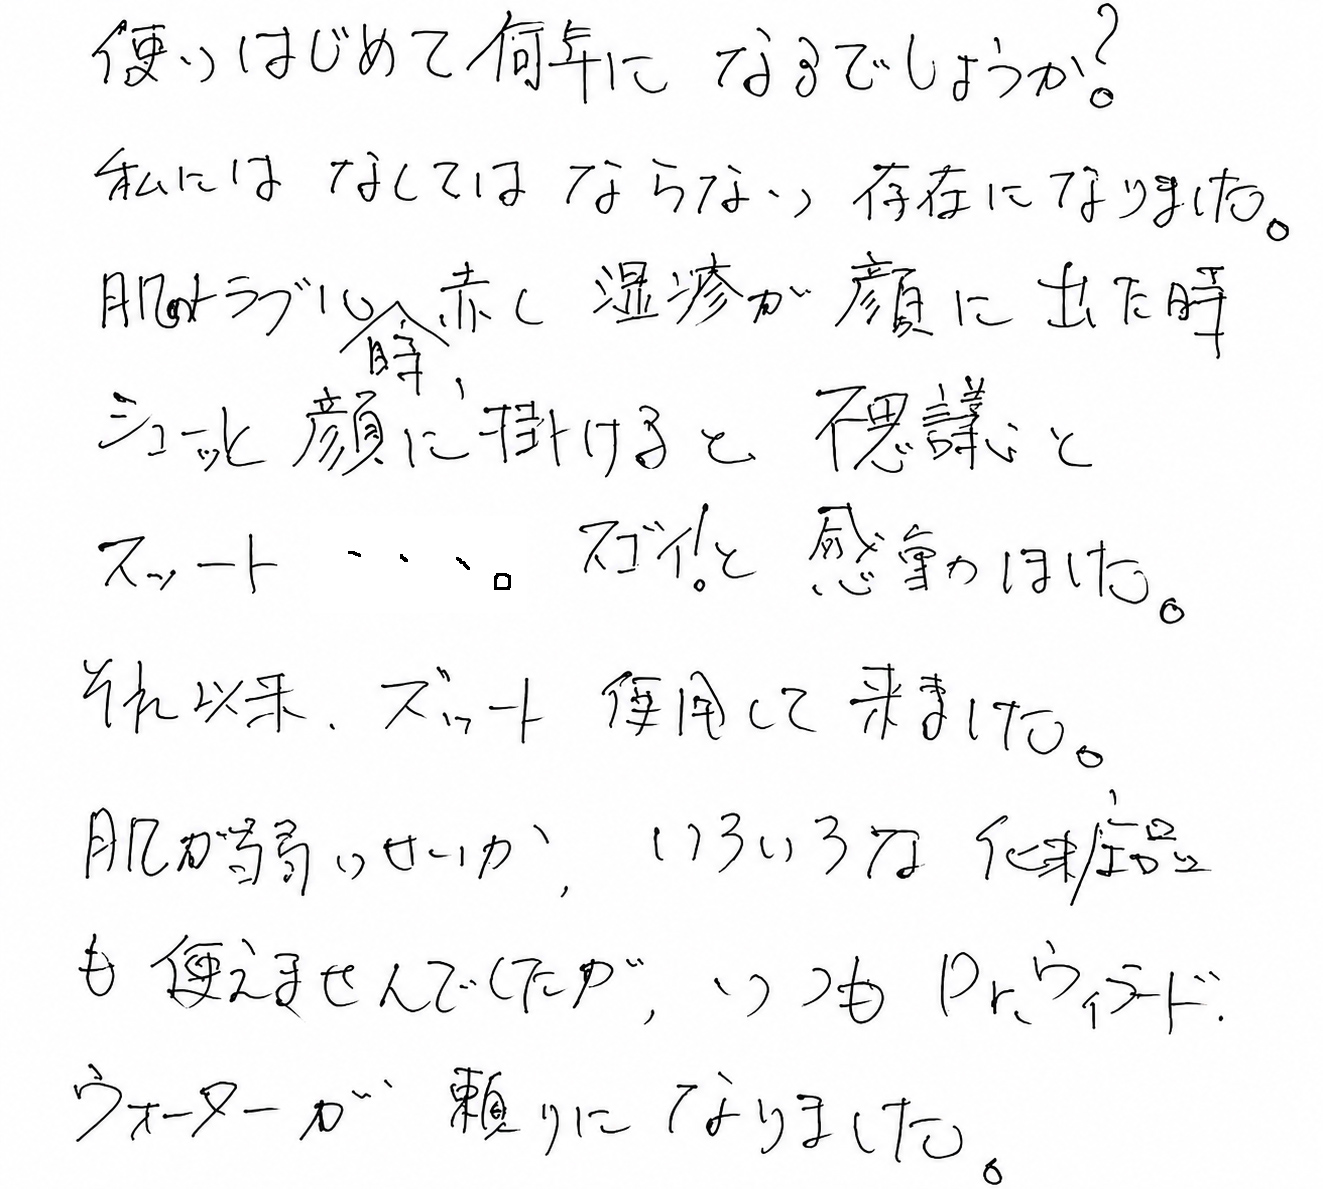 使いはじめて何年になるでしょうか?
私にはなくてはならない存在になりました。
肌のトラブル時、赤く湿疹が顔に出た時
シューッと顔に掛けると不思議と
スッート 、、、。 スゴイ!と感動しました。
それ以来、ズット使用して来ました。
肌が弱いせいか、いろいろな化粧品
も使えませんでしたが、いつもDr.ウィラード.
ウォーターが頼りになりました。